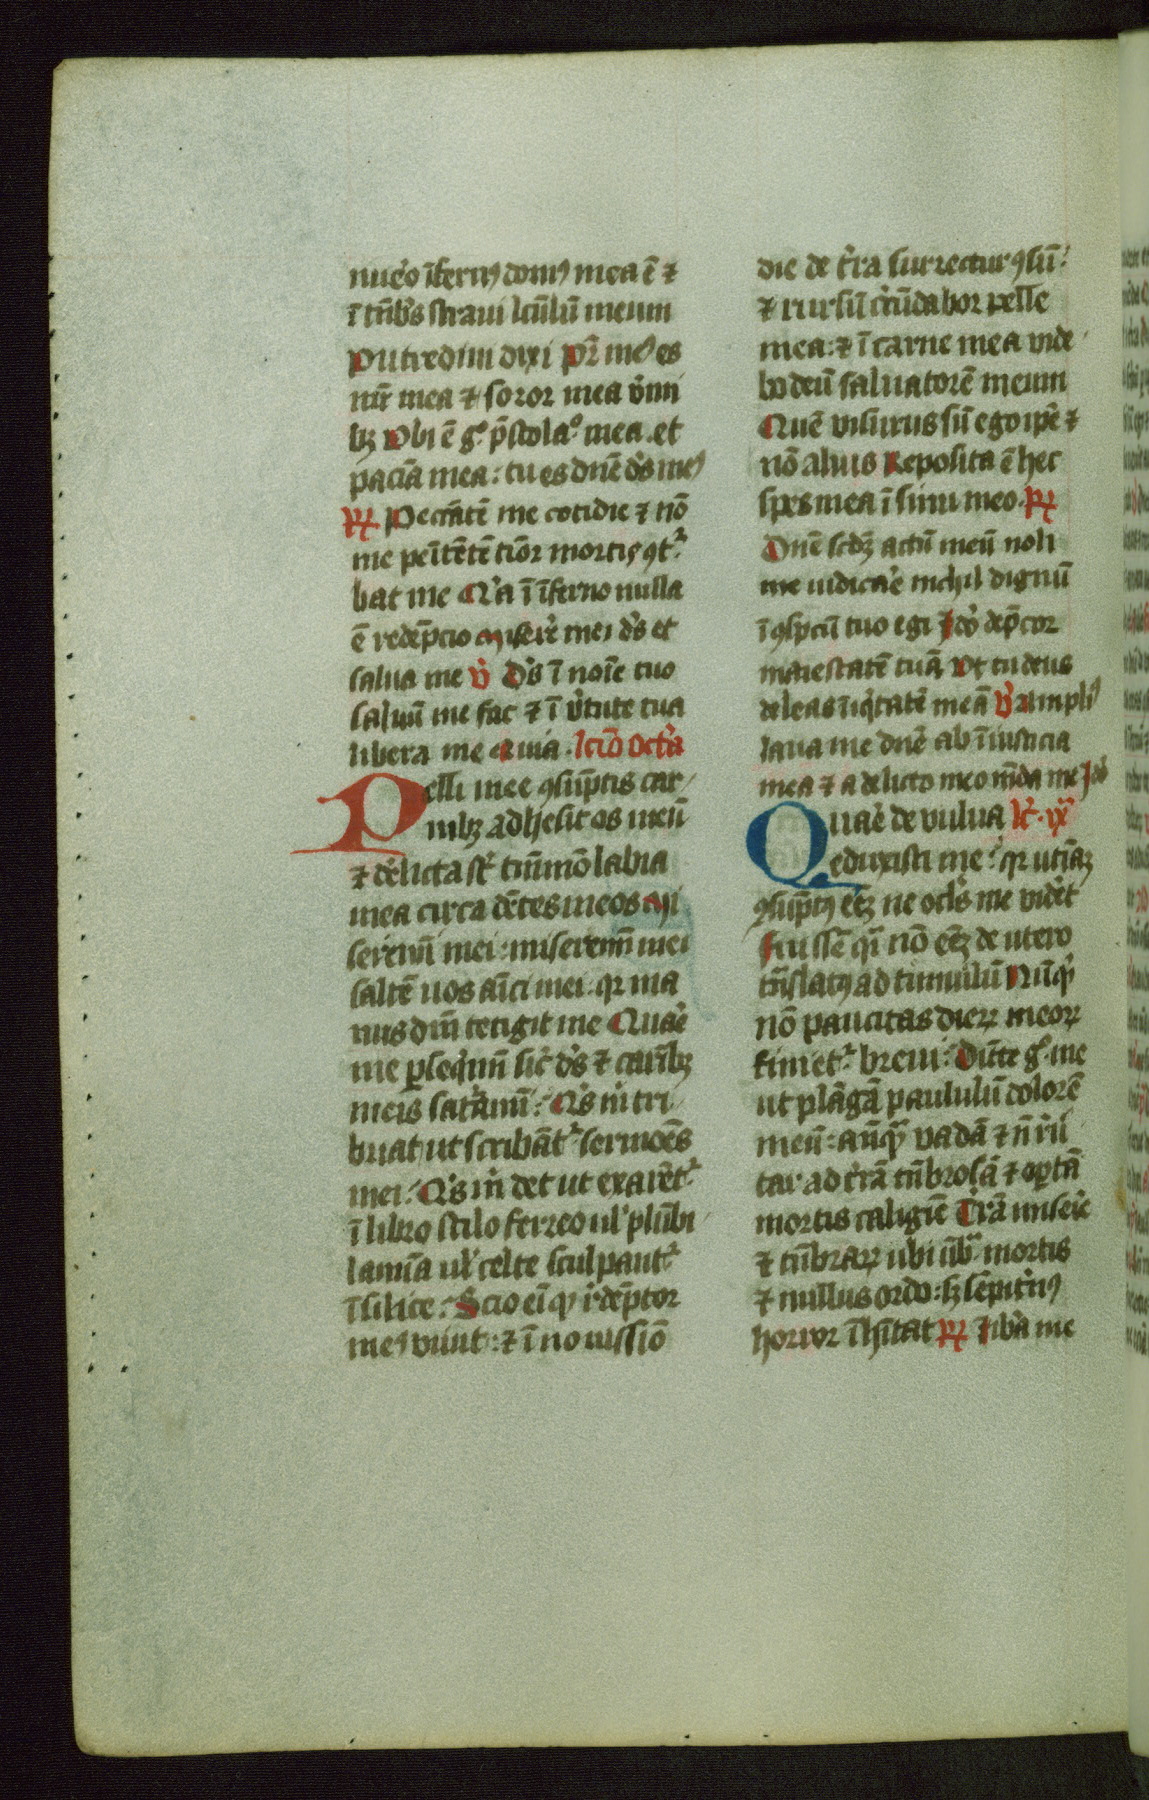 nue'o īfern9 dom9 mea ē ⁊
ī tn̄b's straui lc̄ulū meum
Putredini dixi pr̄ me9 es
mr̄ mea ⁊ soror mea v'mi
bȝ Vbi ē gº p̄stolaº mea et
paciā mea : tu es dnē ds̄ me9
R Peccātē me cotidie ⁊ nō
me penitētē tiōr mortis 9t²
bat me Q'a ī īferno nulla
ē redēpcio Misere' mei ds̄ et
salua me v̄ Ds̄ ī noīe tuo
saluū me fac ⁊ ī v'tute tua
libera me Quia . lcīo octa
Pelli mee 9sūptis car
nibȝ adhesit os meū
⁊ derlicta st̄ tm̄mō labia
mea circa dētes meos Mi
seremī mei : miseremī mei
saltē uos amīci mei : qr ma
nus dnī tetigit me Quare'
me ꝑseq̄mī sic' ds̄ ⁊ carībȝ
meis saturamī : Q's m̄ tri
buat ut scribāt² sermōes
mei : Q's m̄ det ut exarēt²
ī libro stilo ferreo ul' plūbi
lamīa ul' celte sculpant²
ī silice : Scio eī qꝫ redēptor
me9 viuit : ⁊ ī nouissiō
die de t'ra surrectur9 sū :
⁊ rursū circūdabor pelle
mea : ⁊ ī carne mea vide
bo deū saluatorē meum
Quē visurus sū ego ip̄e ⁊
nō alius Reposita ē hec
spes mea ī sinu meo . R
Dnē scdȝ actū meū noli
me iudicare' nichil dignū
ī 9spc̄u tuo egi Ido' dep̄cor
maiestatē tuā Vt tu deus
deleas īiq'tatē meā v̄ Ampli9
laua me dnē ab īiusticia
mea ⁊ a delicto meo mūda me Ido'
Quare' de vulua lc̄ . ix
eduxisti me : qr utinaȝ
9sūpt9 eēȝ ne ocl's me vidēt
Fuissē q̄i nō eēȝ de utero
trāslat9 ad tumulū Nūq'd
nō paucitas dierꝝ meorꝝ
finiet² breui : Dimitte gº me
ut plāgā paululū dolorē
meū : an̄qꝫ vadā ⁊ n̄ r'u
tar ad t'rā tn̄brosā ⁊ opertā
mortis caligine T'rā miserie
⁊ tn̄brarꝝ ubi ūbra mortis
⁊ nullus ordo : sȝ sēpitern9
horror īhitat R Liba me